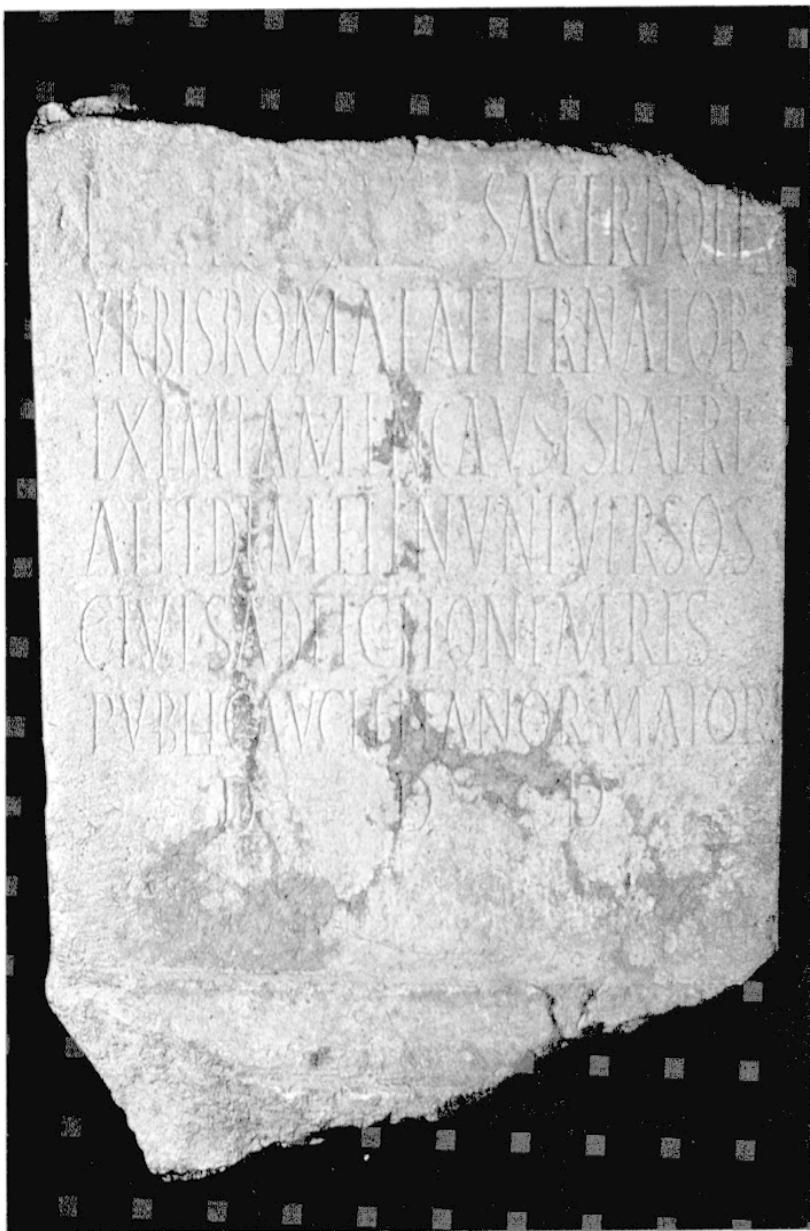 SACERDOTI
VRBIS ROMAE AETERNAE OB
EXIMIAM IN CAVSIS PATRI
AE FIDEM ET IN VNIVERSOS
CIVES ADFECTIONEM RES
PVBLICA VCHITANOR MAIOR
D D D